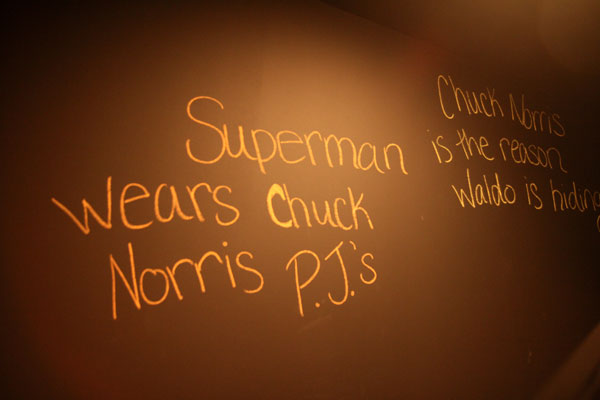 Superman
wears Chuck
Norris P.J.'s
Chuck Norris
is the reason
Waldo is hiding